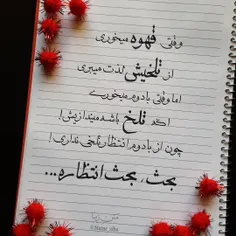 وقتی قهوه میخوری
از تلخیش لذت میبری
اما وقتی بادوم میخورے
اگه تلخ باشه میندازیش!
چون از بادوم انتظار تلخی نداری!
بحث، بحث انتظاره...